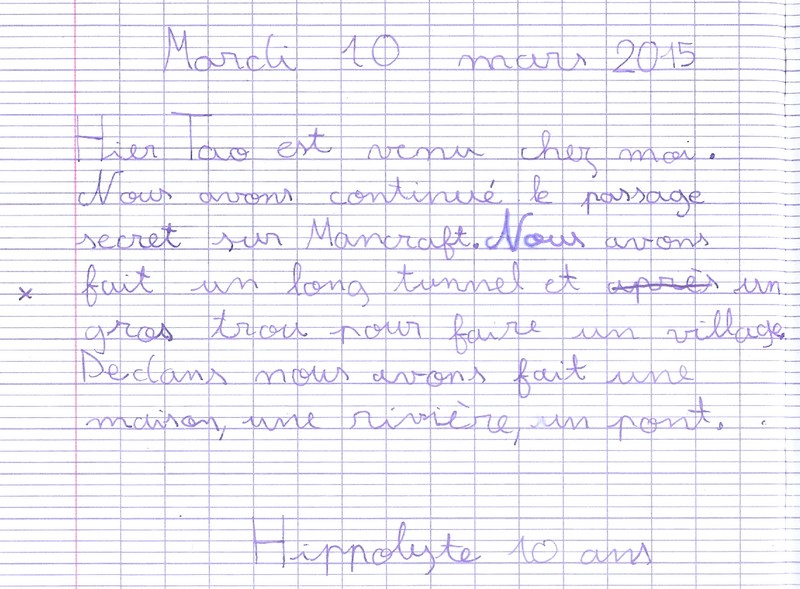 Mardi 10 mars 2015
Hier Tao est venu chez moi.
Nous avons continué le passage
secret sur Mancraft. Nous avons
x fait un long tunnel et après un
gros trou pour faire un village.
Dedans nous avons fait une
maison, une rivière, un pont.
Hippolyte 10 ans